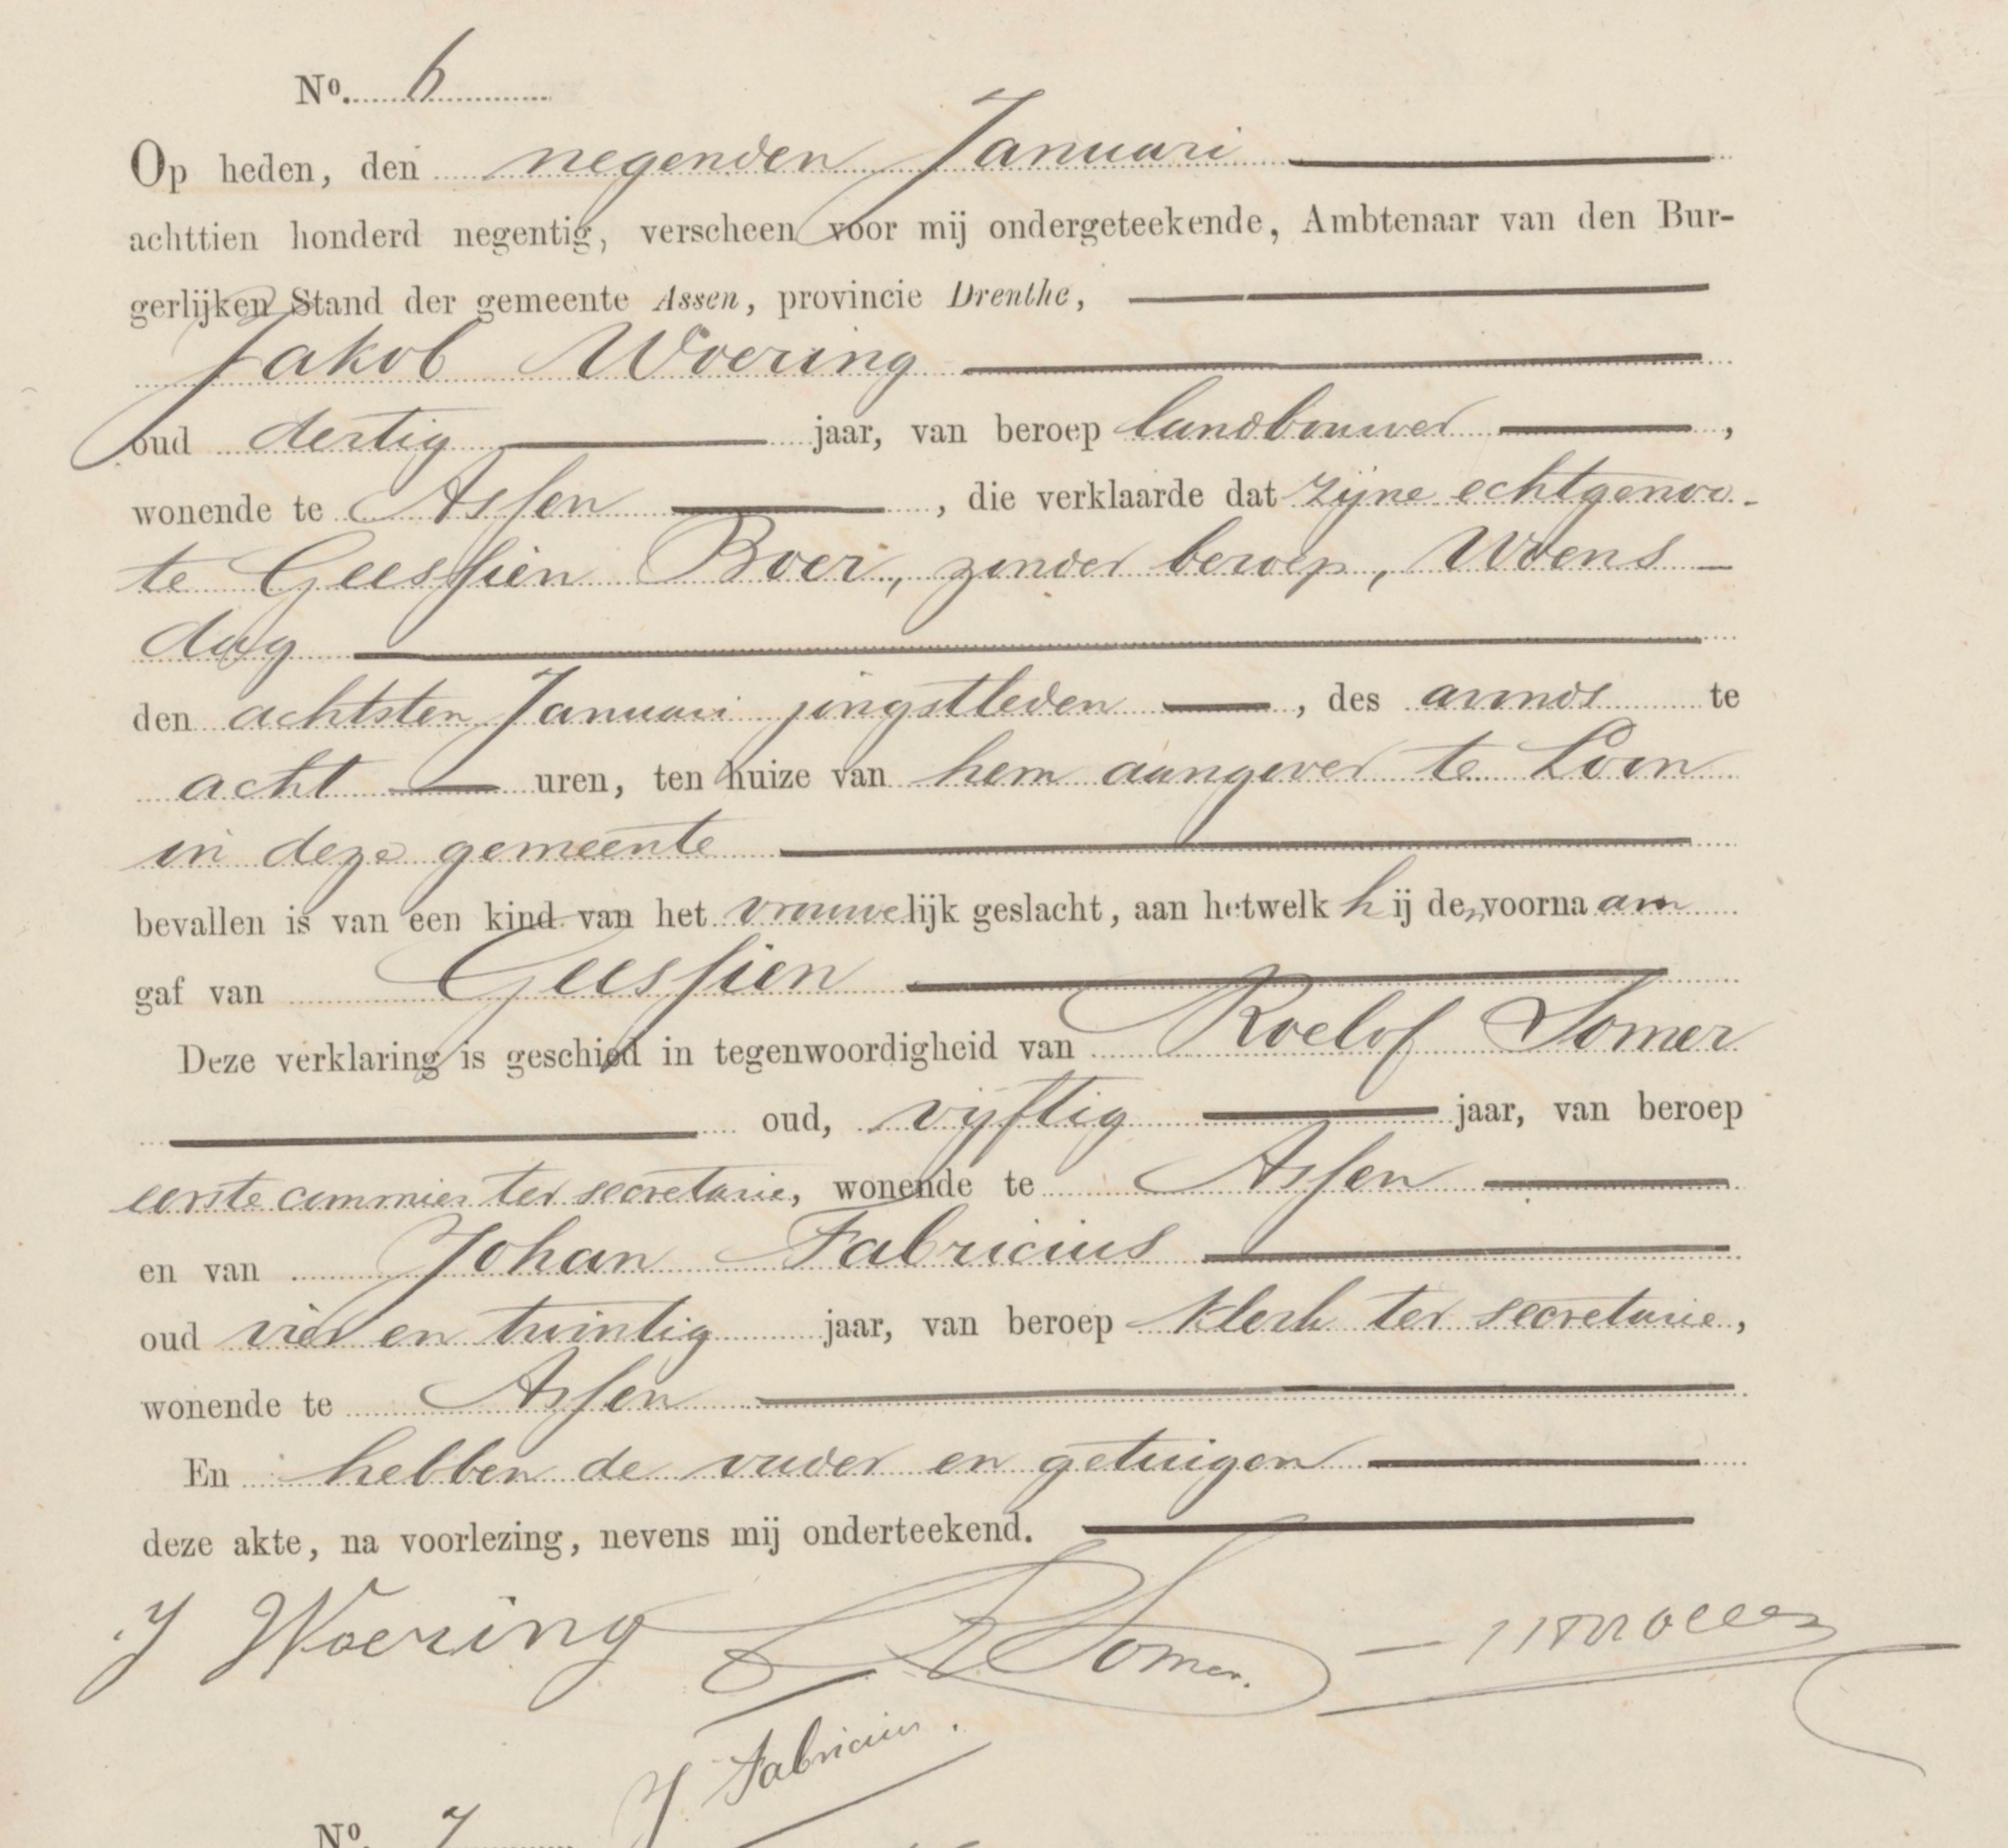 Nº. 6
Op heden, den negenden Januari
achttien honderd negentig, verscheen voor mij ondergeteekende, Ambtenaar van den Bur-
gerlijken Stand der gemeente Assen, provincie Drenthe,
Jakob Woering
oud dertig jaar, van beroep landbouwer,
wonende te Assen, die verklaarde dat zijne echtgenoo-
te Geessien Boer, zonder beroep, Woens-
dag
den achtsten Januari jongstleden, des avonds te
acht uren, ten huize van hem aangever te Loon
in deze gemeente
bevallen is van een kind van het vrouwelijk geslacht, aan hetwelk hij den voornaam
gaf van Geessien
Deze verklaring is geschied in tegenwoordigheid van Roelof Somer
oud, vijftig jaar, van beroep
eerste commies ter secretarie, wonende te Assen
en van Johan Fabricius
oud vier en twintig jaar, van beroep klerk ter secretarie,
wonende te Assen
En hebben de vader en getuigen
deze akte, na voorlezing, nevens mij onderteekend.
J Woering R Somer.
J Fabricius.
Nº. 7